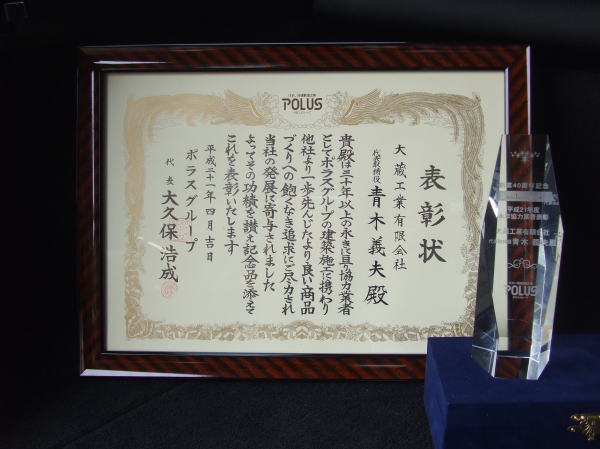 POLUS
表彰状
大蔵工業有限会社
代表取締役 青木義夫殿
貴殿は三十年以上の永きに亘り協力業者
としてポラスグループの建築施工に携わり
他社より一歩先んじたより良い商品
づくりへの飽くなき追求にご尽力され
当社の発展に寄与されました
よってその功績を讃え記念品を添えて
これを表彰いたします
平成二十一年四月吉日
ポラスグループ
代表 大久保浩成
40周年記念
平成21年度
協力業者表彰
大蔵工業有限会社
青木 義夫殿
POLUS